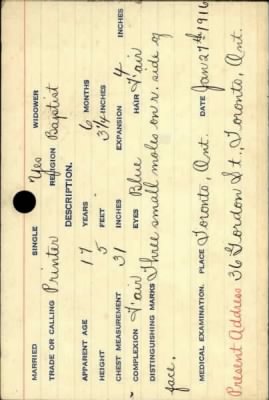 MARRIED SINGLE Yes WIDOWER
TRADE OR CALLING Printer RELIGION Baptist
DESCRIPTION.
APPARENT AGE 17 YEARS 6 MONTHS
HEIGHT 5 FEET 3¼ INCHES
CHEST MEASUREMENT 31 INCHES EXPANSION 4 INCHES
COMPLEXION Fair EYES Blue HAIR Fair
DISTINGUISHING MARKS Three small moles on r. side of
face.
MEDICAL EXAMINATION. PLACE Toronto, Ont. DATE Jan 27th 1916
Present Address 36 Gordon St., Toronto, Ont.